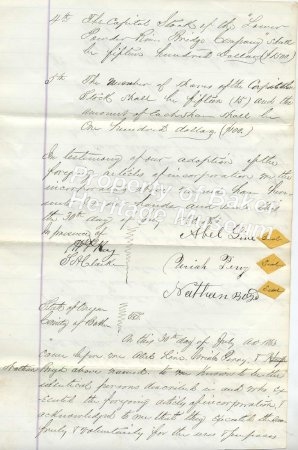 4th The Capital Stock of the "Lower
Powder River Bridge Company" shall
be fifteen hundred dollars ($1500.)
5th The number of shares of the Corporation
Stock shall be fifteen (15) and the
amount of each share shall be
One hundred dollars ($100.)
In testimony of our adoption of the
foregoing articles of incorporation we the
incorporators
hands and
the 30th day of July
In presence of
Property of Baker
Heritage Museum
Abel Line Seal
Seal
Nathan Seal
State of Oregon
County of Baker SS.
On this 30th day of July AD
came before me Abel Line
above named to me known to be the
identical persons described in and who ex-
ecuted the foregoing articles of incorporation, &
acknowledged to me that they executed the same
freely & voluntarily for the uses & purposes